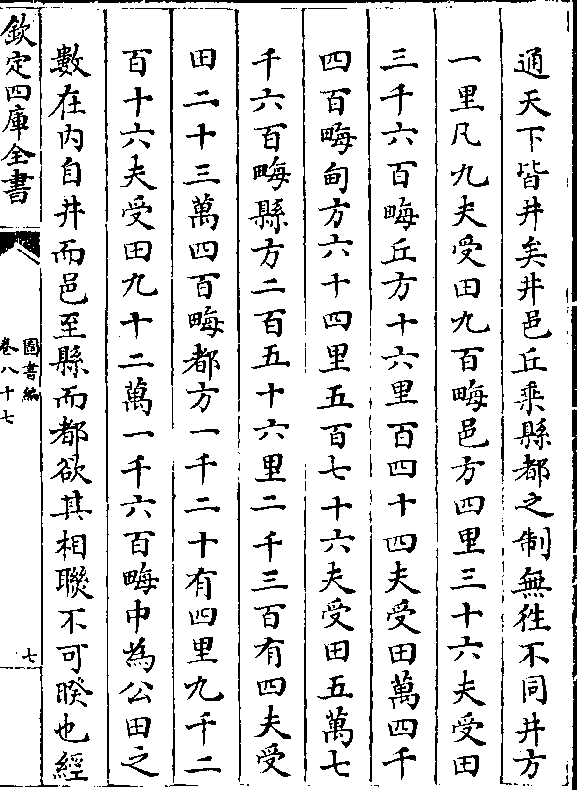 通天下皆井矣井邑丘乘縣都之制無徃不同井方
一里凡九夫受田九百畮邑方四里三十六夫受田
三千六百畮丘方十六里百四十四夫受田萬四千
四百畮甸方六十四里五百七十六夫受田五萬七
千六百畮縣方二百五十六里二千三百有四夫受
田二十三萬四百畮都方一千二十有四里九千二
百十六夫受田九十二萬一千六百畮中為公田之
數在内自井而邑至縣而都欲其相聯不可睽也經
欽定四庫全書
圖書編
卷八十七
七